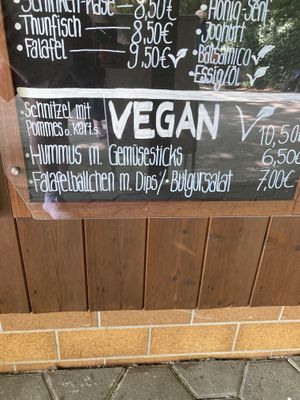 Schinken-Käse 8,50€
Thunfisch 8,50€
Falafel 9,50€
Honig Senf
Joghurt
Balsamico
Essig/Öl
Schnitzel mit
Pommes o. Kart.s.
VEGAN
10,50
Hummus m. Gemüsesticks 6,50€
Falafelbällchen m. Dips/ Bulgursalat 7,00€